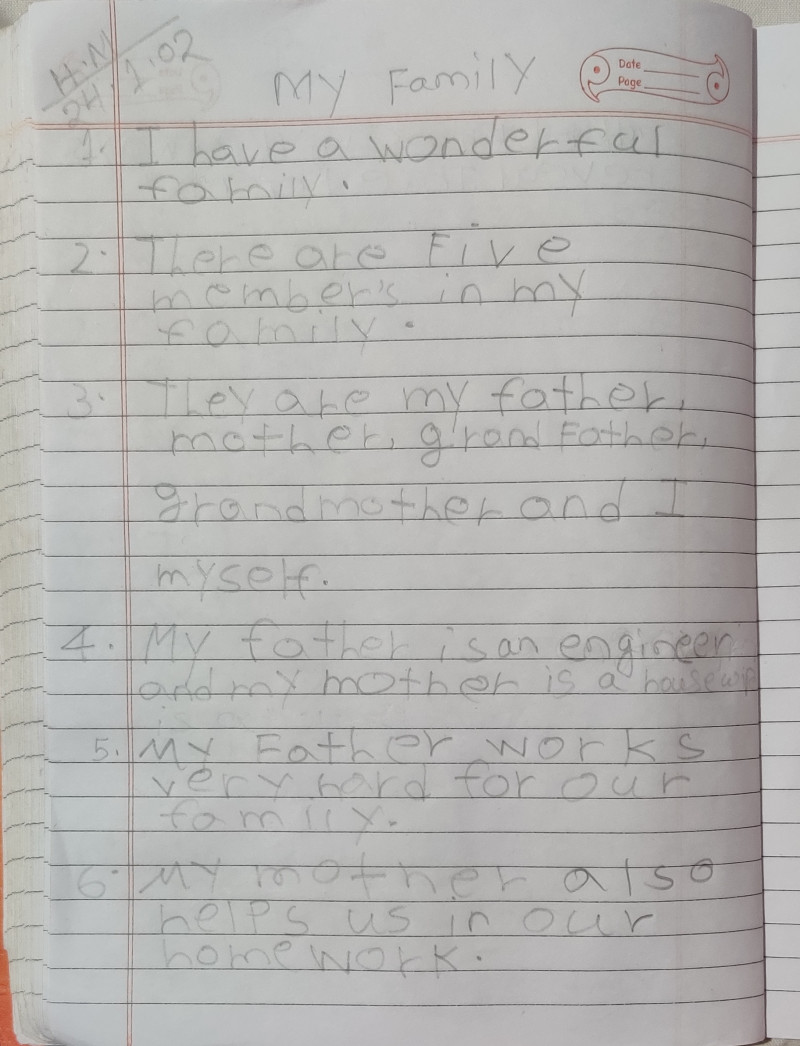 H.W
24.1.02
My Family
Date
Page
1. I have a wonderful
family.
2. There are Five
member's in my
family.
3. They are my father,
mother, grand Father,
grandmother and I
myself.
4. My father is an engineer
and my mother is a housewif
5. My Father works
very hard for our
family.
6. My mother also
helps us in our
homework.